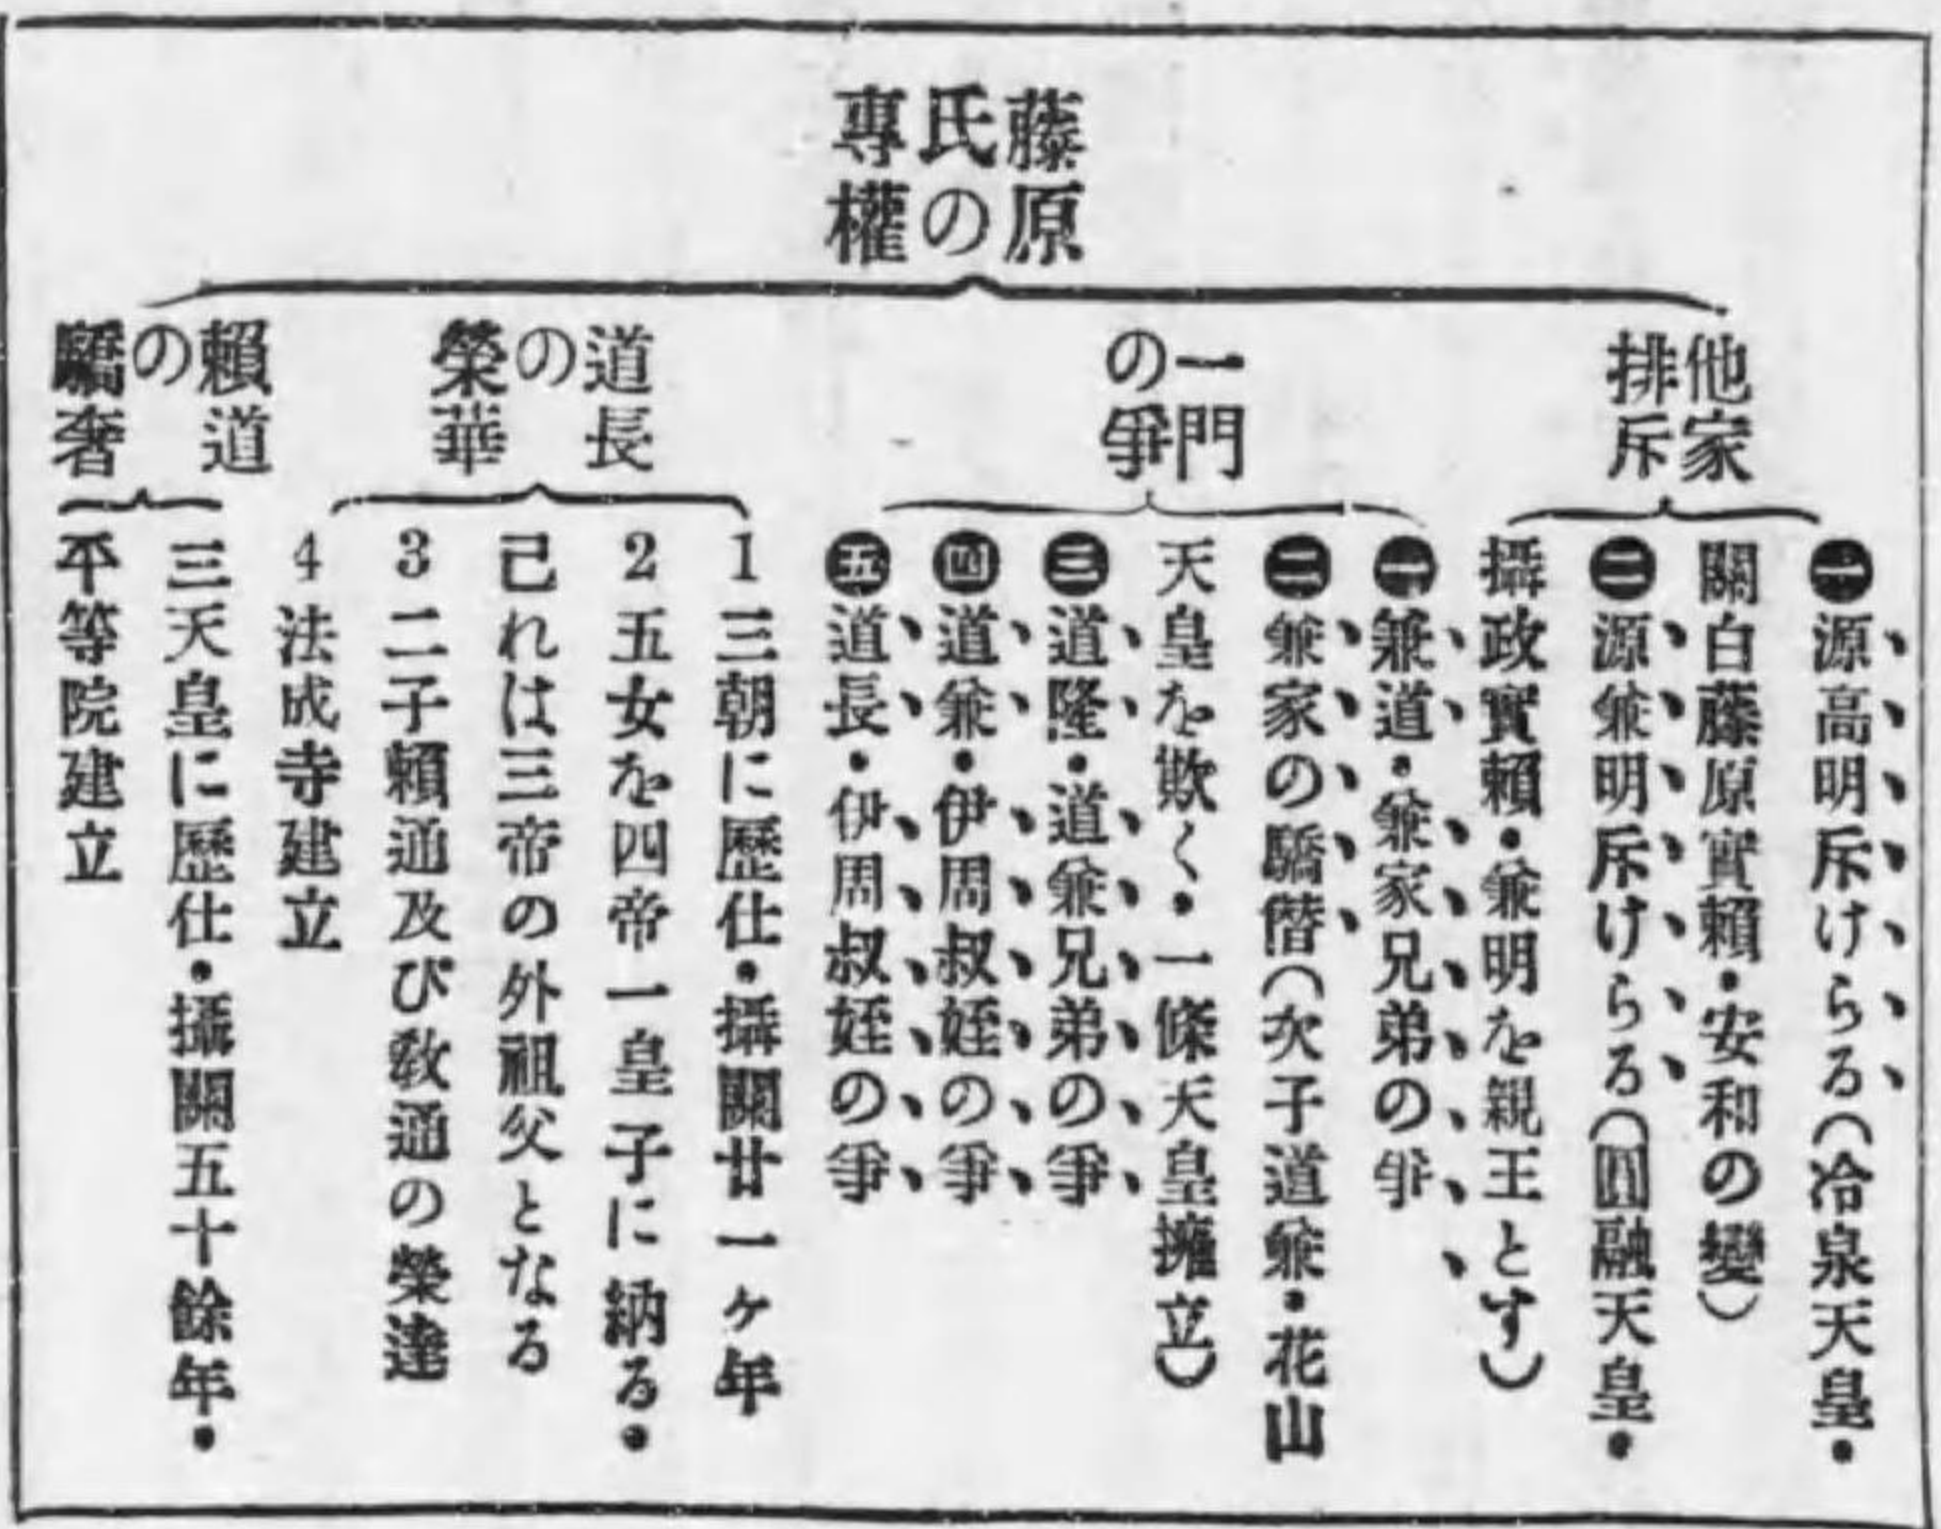 藤原
氏の
專權
他家
排斥
㊀源高明斥けらる(冷泉天皇・
關白藤原實賴・安和の變)
㊁源兼明斥けらる(圓融天皇・
攝政實賴・兼明を親王とす)
一門
の爭
㊀兼道・兼家兄弟の爭
㊁兼家の驕僭(次子道兼・花山
天皇を欺く・一條天皇擁立)
㊂道隆・道兼兄弟の爭
㊃道兼・伊周叔姪の爭
㊄道長・伊周叔姪の爭
道長
の
榮華
1 三朝に歷仕・攝關廿一ヶ年
2 五女を四帝一皇子に納る・
己れは三帝の外祖父となる
3 二子賴通及び敎通の榮達
4 法成寺建立
賴道
の
驕奢
三天皇に歷仕・攝關五十餘年・
平等院建立